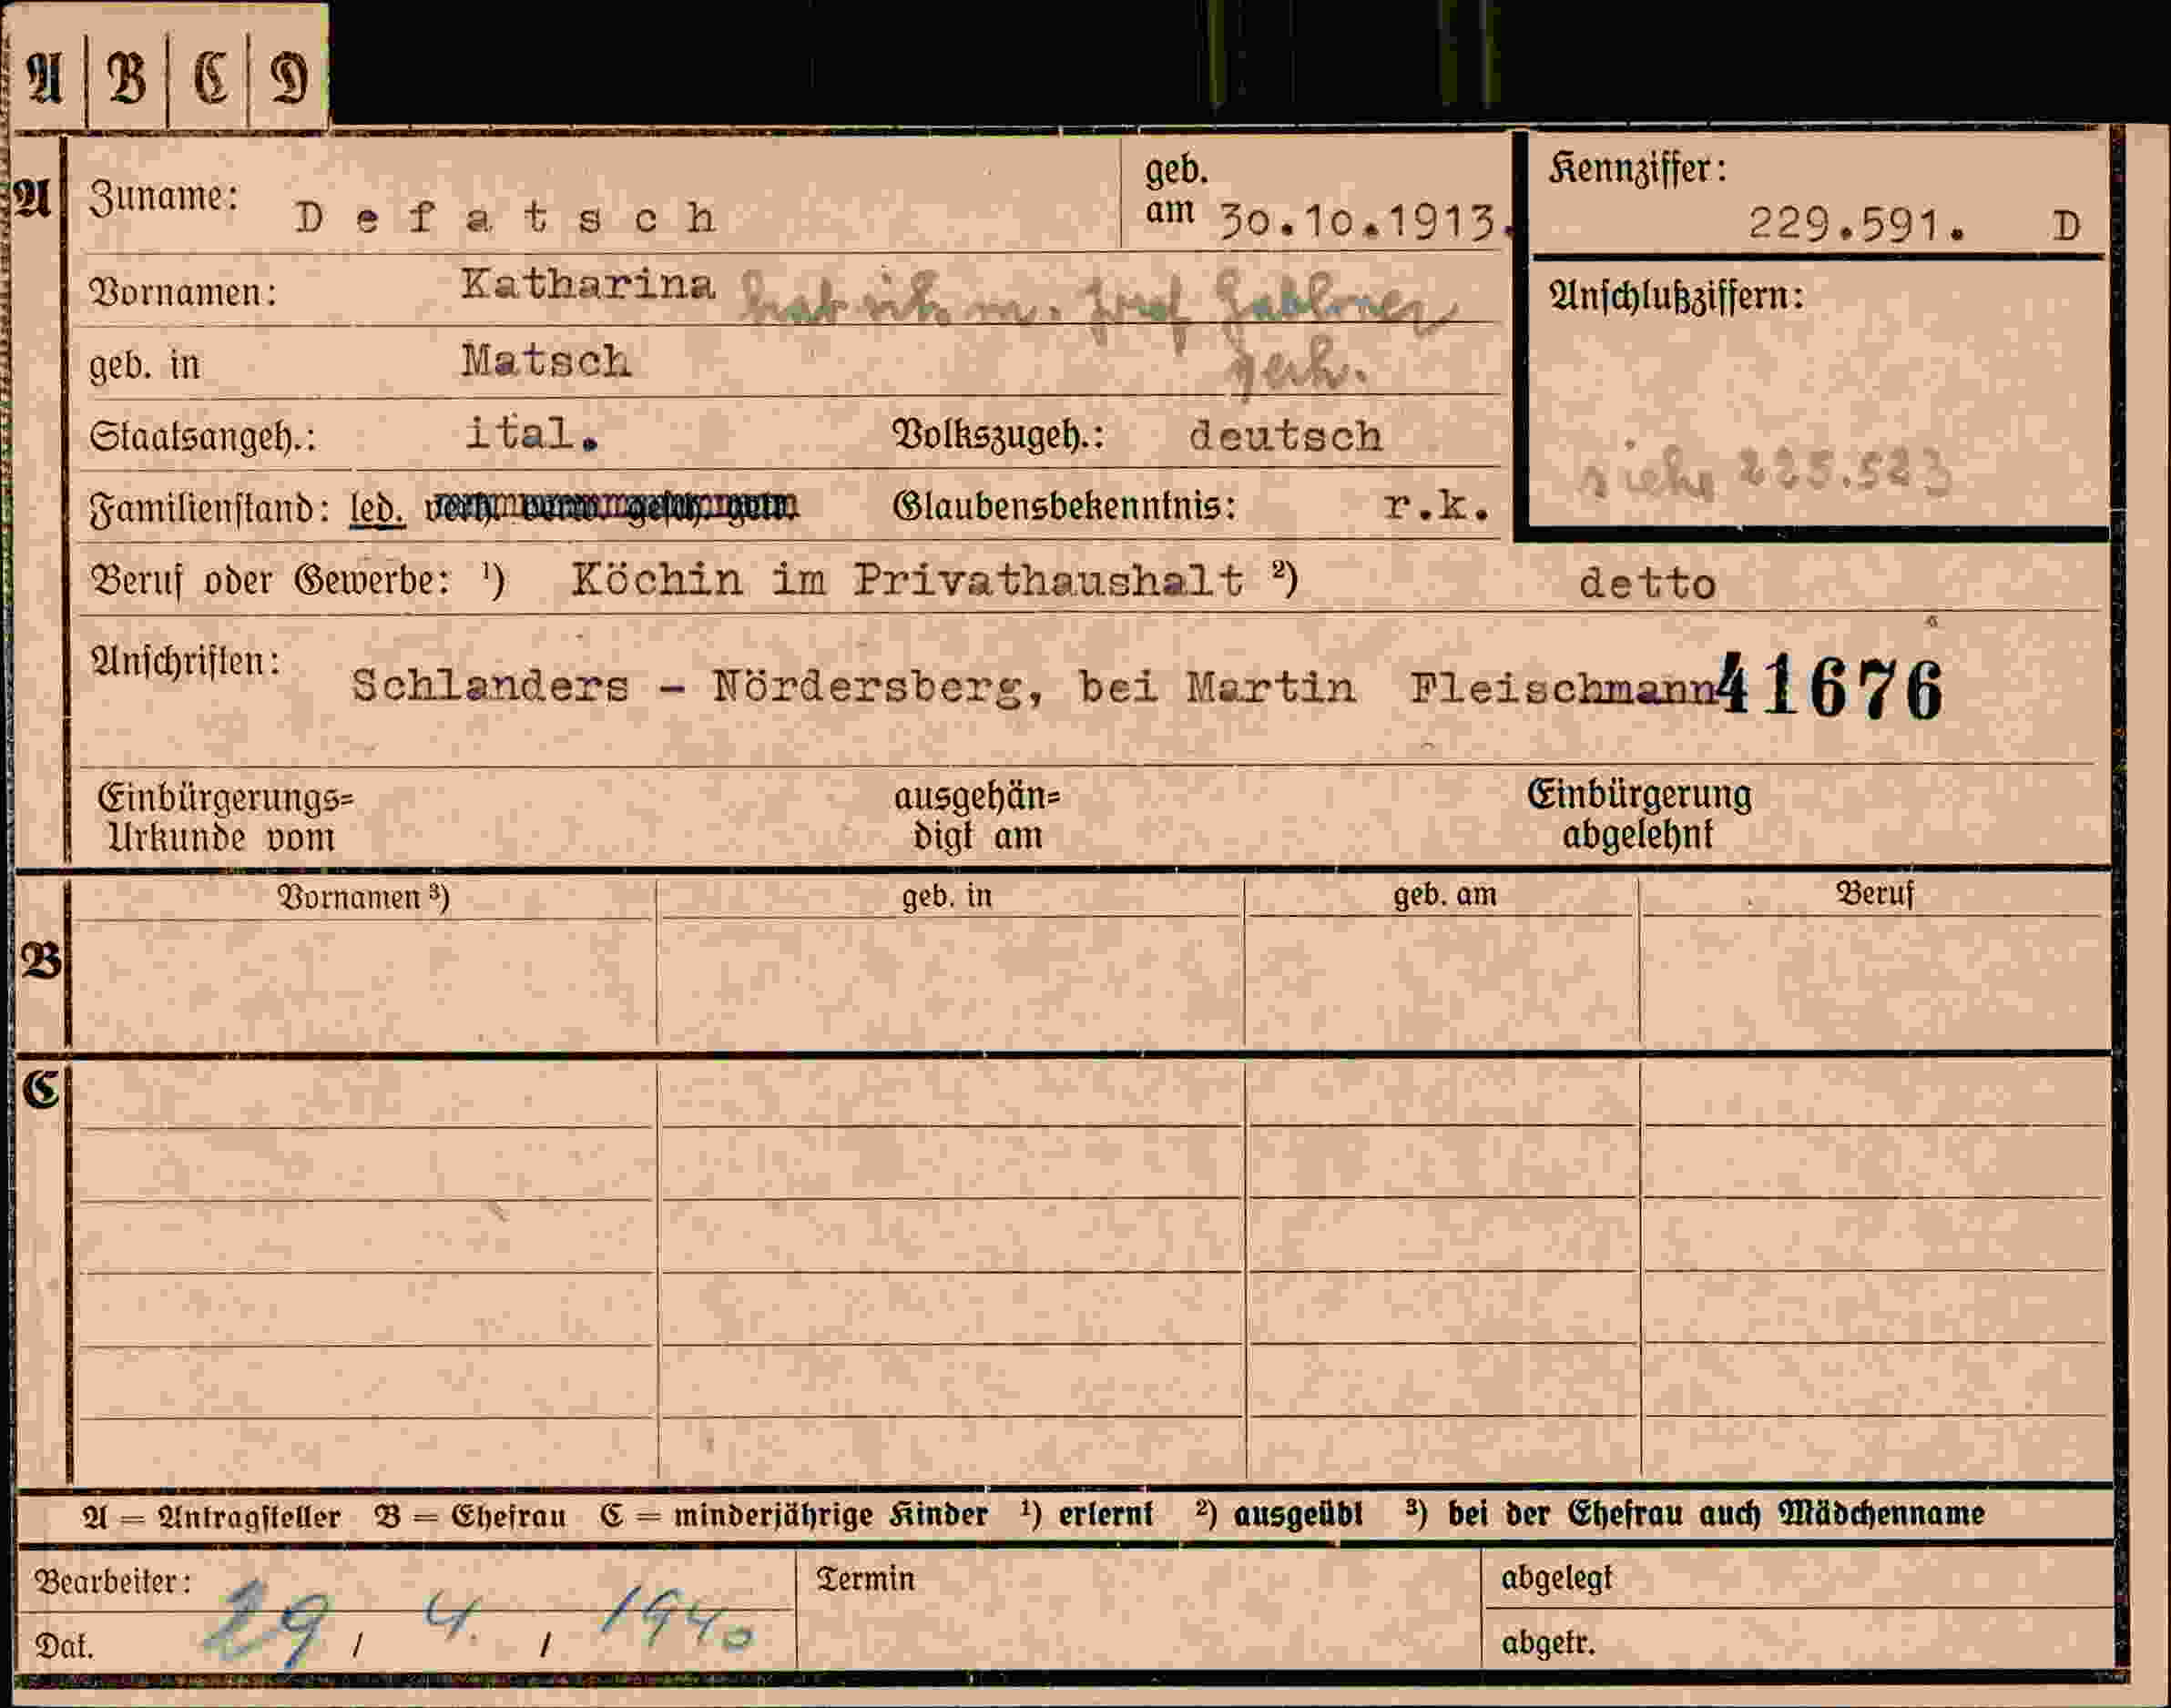 A | B | C | D
A
Zuname: Defatsch
geb. am 30.10.1913.
Kennziffer: 229.591. D
Vornamen: Katharina hat sich m. Josef
verh.
Anschlußziffern:
siehe 225.523
geb. in Matsch
Staatsangeh.: ital. Volkszugeh.: deutsch
Familienstand: led. Glaubensbekenntnis: r.k.
Beruf oder Gewerbe: ¹) Köchin im Privathaushalt ²) detto
Anschriften: Schlanders - Nördersberg, bei Martin Fleischmann 41676
Einbürgerungs=
Urkunde vom
ausgehän=
digt am
Einbürgerung
abgelehnt
B
Vornamen ³) geb. in geb. am Beruf
C
A = Antragsteller B = Ehefrau C = minderjährige Kinder ¹) erlernt ²) ausgeübt ³) bei der Ehefrau auch Mädchenname
Bearbeiter:
Dat. 29 / 4. / 1940
Termin
abgelegt
abgetr.